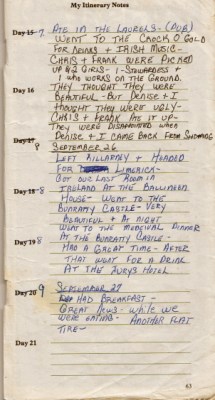 My Itinerary Notes
Day 15 7 ATE IN THE LAURELS - (PUB)
WENT TO THE CROCK O GOLD
FOR DRINKS + IRISH MUSIC -
CHRIS + FRANK WERE PICKED
UP BY 2 GIRLS - 1 - STEWARDESS +
1 WHO WORKS ON THE GROUND.
Day 16 THEY THOUGHT THEY WERE
BEAUTIFUL - BUT DENISE + I
THOUGHT THEY WERE UGLY -
CHRIS + FRANK ATE IT UP -
THEY WERE DISAPPOINTED WHEN
DENISE + I CAME BACK FROM
Day 17 9 SEPTEMBER 26
LEFT KILLARNEY + HEADED
FOR LIMERICK -
GOT OUR LAST ROOM IN
Day 18 8 IRELAND AT THE
HOUSE - WENT TO THE
BUNRATTY CASTLE - VERY
BEAUTIFUL + AT NIGHT
WENT TO THE MEDIEVAL DINNER
Day 19 8 AT THE BUNRATTY CASTLE -
HAD A GREAT TIME - AFTER
THAT WENT FOR A DRINK
AT THE JURYS HOTEL
Day 20 9 SEPTEMBER 27
HAD BREAKFAST -
GREAT NEWS - WHILE WE
WERE EATING - ANOTHER FLAT
TIRE -
Day 21
63